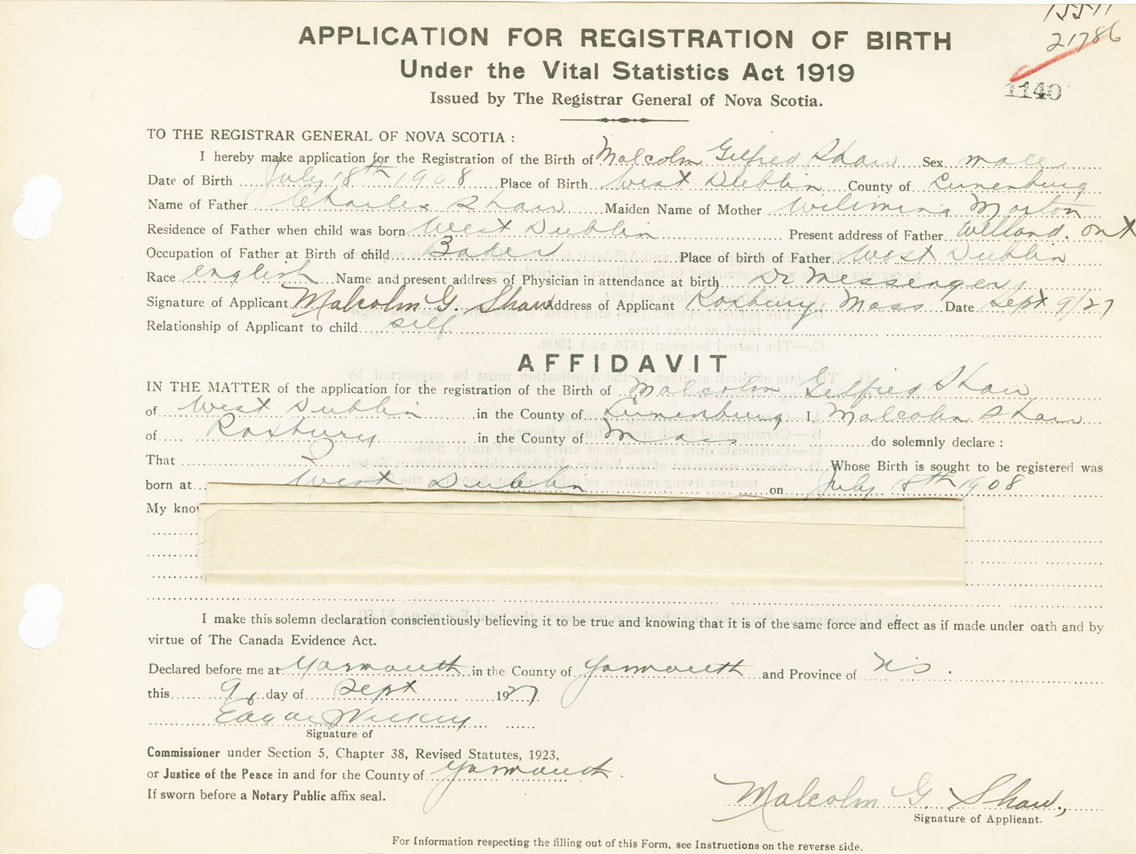 21786
1140
APPLICATION FOR REGISTRATION OF BIRTH
Under the Vital Statistics Act 1919
Issued by The Registrar General of Nova Scotia.
TO THE REGISTRAR GENERAL OF NOVA SCOTIA :
I hereby make application for the Registration of the Birth of Malcolm Gilfred Shaw Sex male
Date of Birth July 18th 1908 Place of Birth West Dublin County of Lunenburg
Name of Father Charles Shaw Maiden Name of Mother Wilimina Morton
Residence of Father when child was born West Dublin Present address of Father Welland. Ont
Occupation of Father at Birth of child Baker Place of birth of Father West Dublin
Race english Name and present address of Physician in attendance at birth Dr Messenger
Signature of Applicant Malcolm G. Shaw Address of Applicant Roxbury, Mass Date Sept 9/27
Relationship of Applicant to child self
AFFIDAVIT
IN THE MATTER of the application for the registration of the Birth of Malcolm Gilfred Shaw
of West Dublin in the County of Lunenburg I, Malcolm Shaw
of Roxbury in the County of Mass do solemnly declare :
That I Whose Birth is sought to be registered was
born at West Dublin on July 18th 1908
My know
I make this solemn declaration conscientiously believing it to be true and knowing that it is of the same force and effect as if made under oath and by
virtue of The Canada Evidence Act.
Declared before me at Yarmouth in the County of Yarmouth and Province of N.S.
this 9 day of Sept 1927
Edgar
Signature of
Commissioner under Section 5, Chapter 38, Revised Statutes, 1923,
or Justice of the Peace in and for the County of Yarmouth.
If sworn before a Notary Public affix seal.
Malcolm G. Shaw,
Signature of Applicant.
For Information respecting the filling out of this Form, see Instructions on the reverse side.